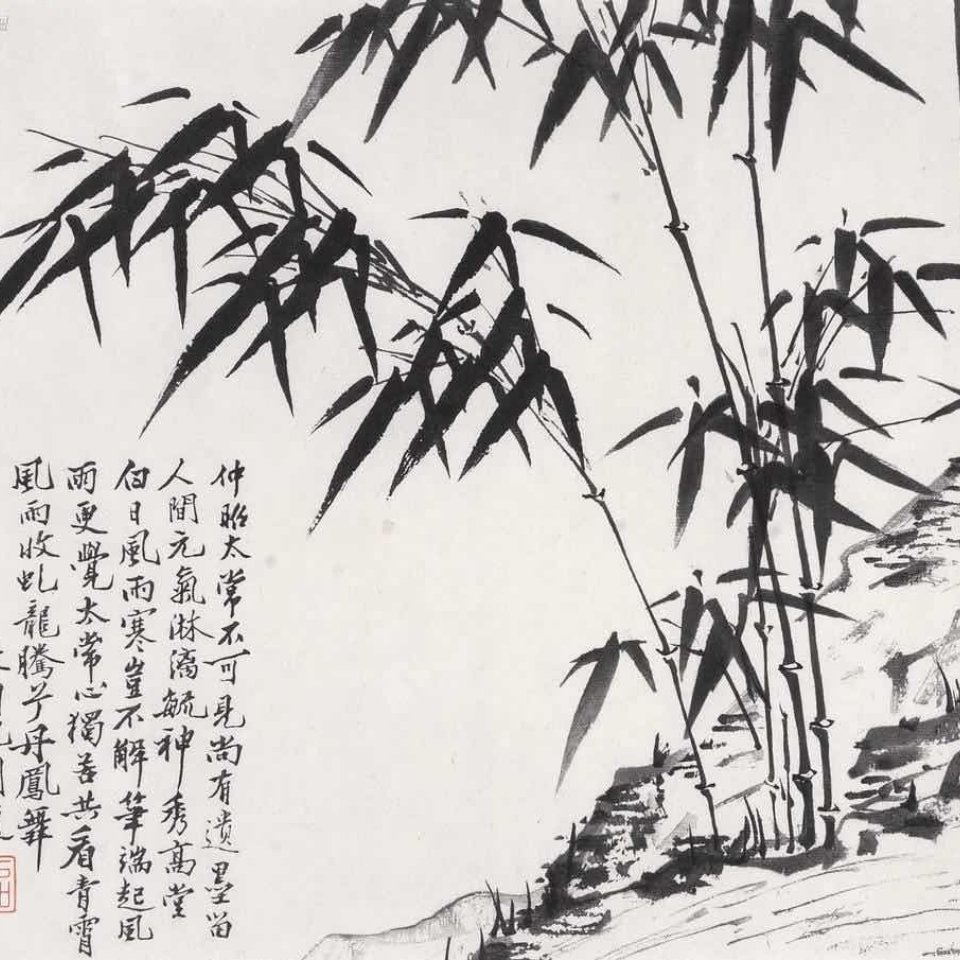 仲昭太常不可見尚有遺墨留
人間元氣淋漓毓神秀高堂
白日風雨寒豈不解筆端起風
雨更覺太常心獨苦共看青霄
風雨收虬龍騰兮丹鳳舞